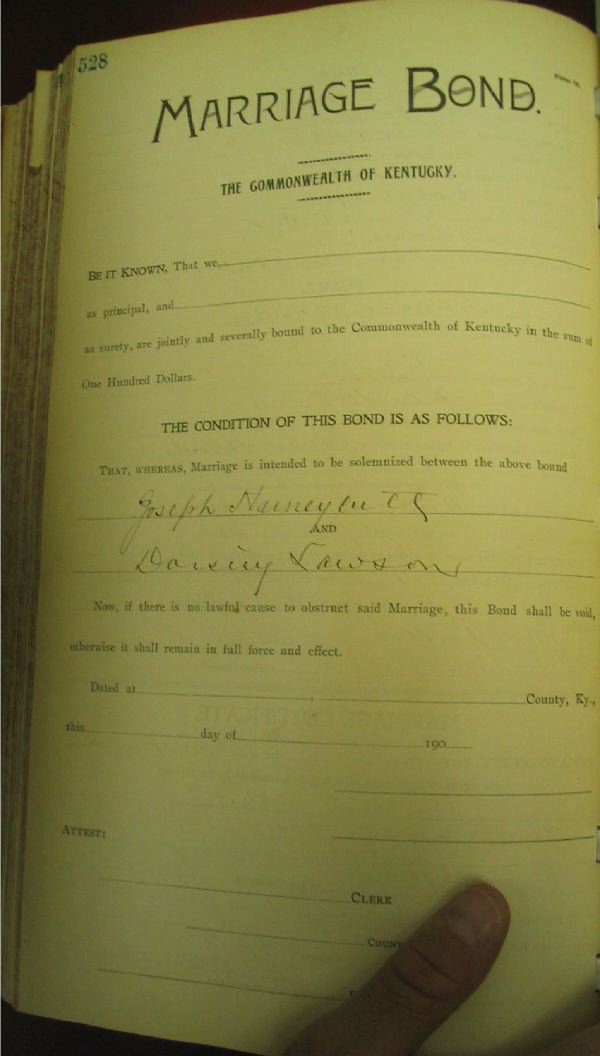 528
MARRIAGE BOND.
THE COMMONWEALTH OF KENTUCKY.
BE IT KNOWN, That we,
as principal, and
as surety, are jointly and severally bound to the Commonwealth of Kentucky in the sum of
One Hundred Dollars.
THE CONDITION OF THIS BOND IS AS FOLLOWS:
THAT, WHEREAS, Marriage is intended to be solemnized between the above bound
Joseph
AND
Lawson
Now, if there is no lawful cause to obstruct said Marriage, this Bond shall be void,
otherwise it shall remain in full force and effect.
Dated at , County, Ky.,
this day of 190
ATTEST:
CLERK